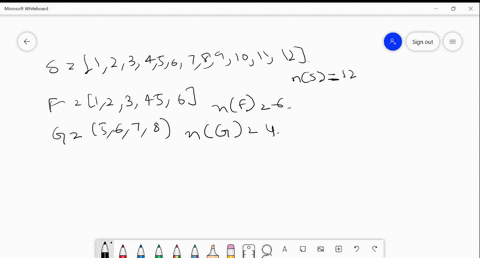 Microsoft Whiteboard
Sign out
S = [1, 2, 3, 4, 5, 6, 7, 8, 9, 10, 11, 12].
n(S) = 12
F = [1, 2, 3, 4 5, 6] n(F) = 6.
G = (5, 6, 7, 8) n(G) = 4.